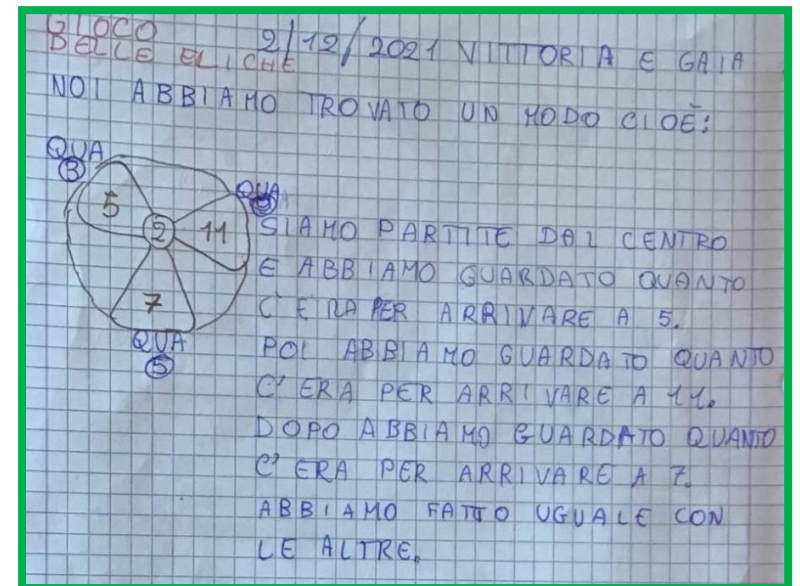 GIOCO
DELLE ELICHE
2/12/2021 VITTORIA E GAIA
NOI ABBIAMO TROVATO UN MODO CIOÈ:
QUA
3
QUA
5
2
11
7
QUA
5
SIAMO PARTITE DAL CENTRO
E ABBIAMO GUARDATO QUANTO
C'ERA PER ARRIVARE A 5.
POI ABBIAMO GUARDATO QUANTO
C'ERA PER ARRIVARE A 11.
DOPO ABBIAMO GUARDATO QUANTO
C'ERA PER ARRIVARE A 7.
ABBIAMO FATTO UGUALE CON
LE ALTRE.